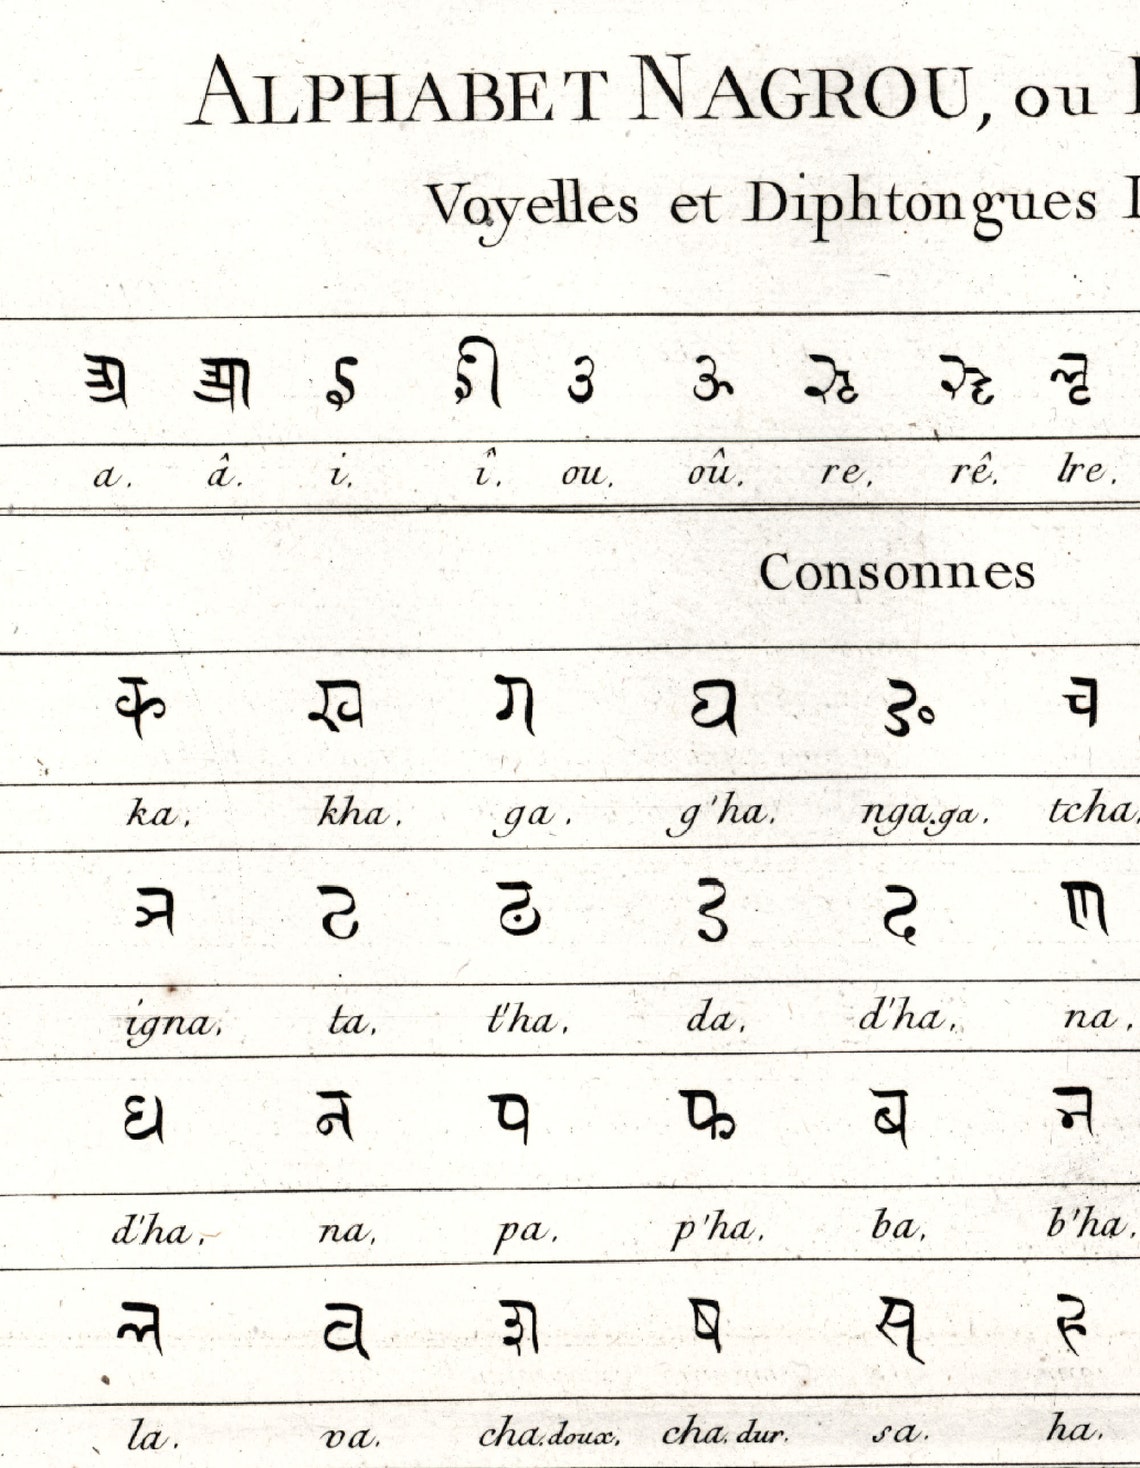 ALPHABET NAGROU, ou
Voyelles et Diphtongues
अ आ इ ई उ ऊ ऋ ॠ ऌ
a. â. i. î. ou. oû. re. rê. lre.
Consonnes
क ख ग घ ङ च
ka. kha. ga. g'ha. nga.ga. tcha.
ञ ट ठ ड ढ ण
igna. ta. t'ha. da. d'ha. na.
ध न प फ ब भ
d'ha. na. pa. p'ha. ba. b'ha.
ल व श ष स ह
la. va. cha.doux. cha.dur. sa. ha.